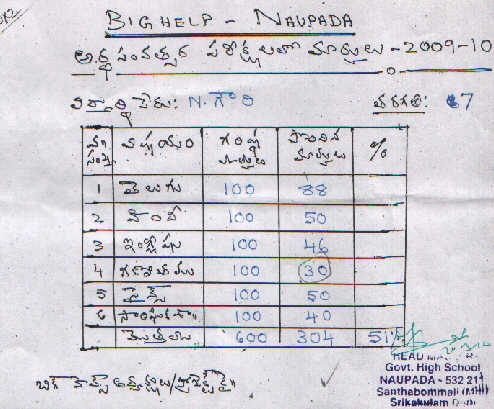 BIG HELP - NAUPADA
అర్థ సంవత్సర పరీక్షలలో మార్కులు - 2009-10
విద్యార్థి పేరు: N. గౌరి తరగతి: 7
విషయం గరిష్ట మార్కులు పొందిన మార్కులు %
1 తెలుగు 100 88
2 హిందీ 100 50
3 ఇంగ్లీషు 100 46
4 100 30
5 100 50
6 100 40
మొత్తము 600 304 51%
HEAD
Govt. High School
NAUPADA - 532 21
Santhabommali
Srikakulam